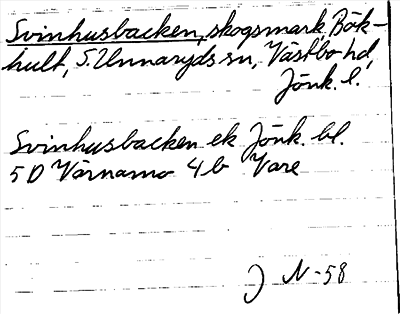 Svinhusbacken, skogsmark, Bök-
hult, S. Unnaryds sn, Västbo hd,
Jönk. l.
Svinhusbacken ek Jönk. bl.
5D Värnamo 4b Vare
J N-58